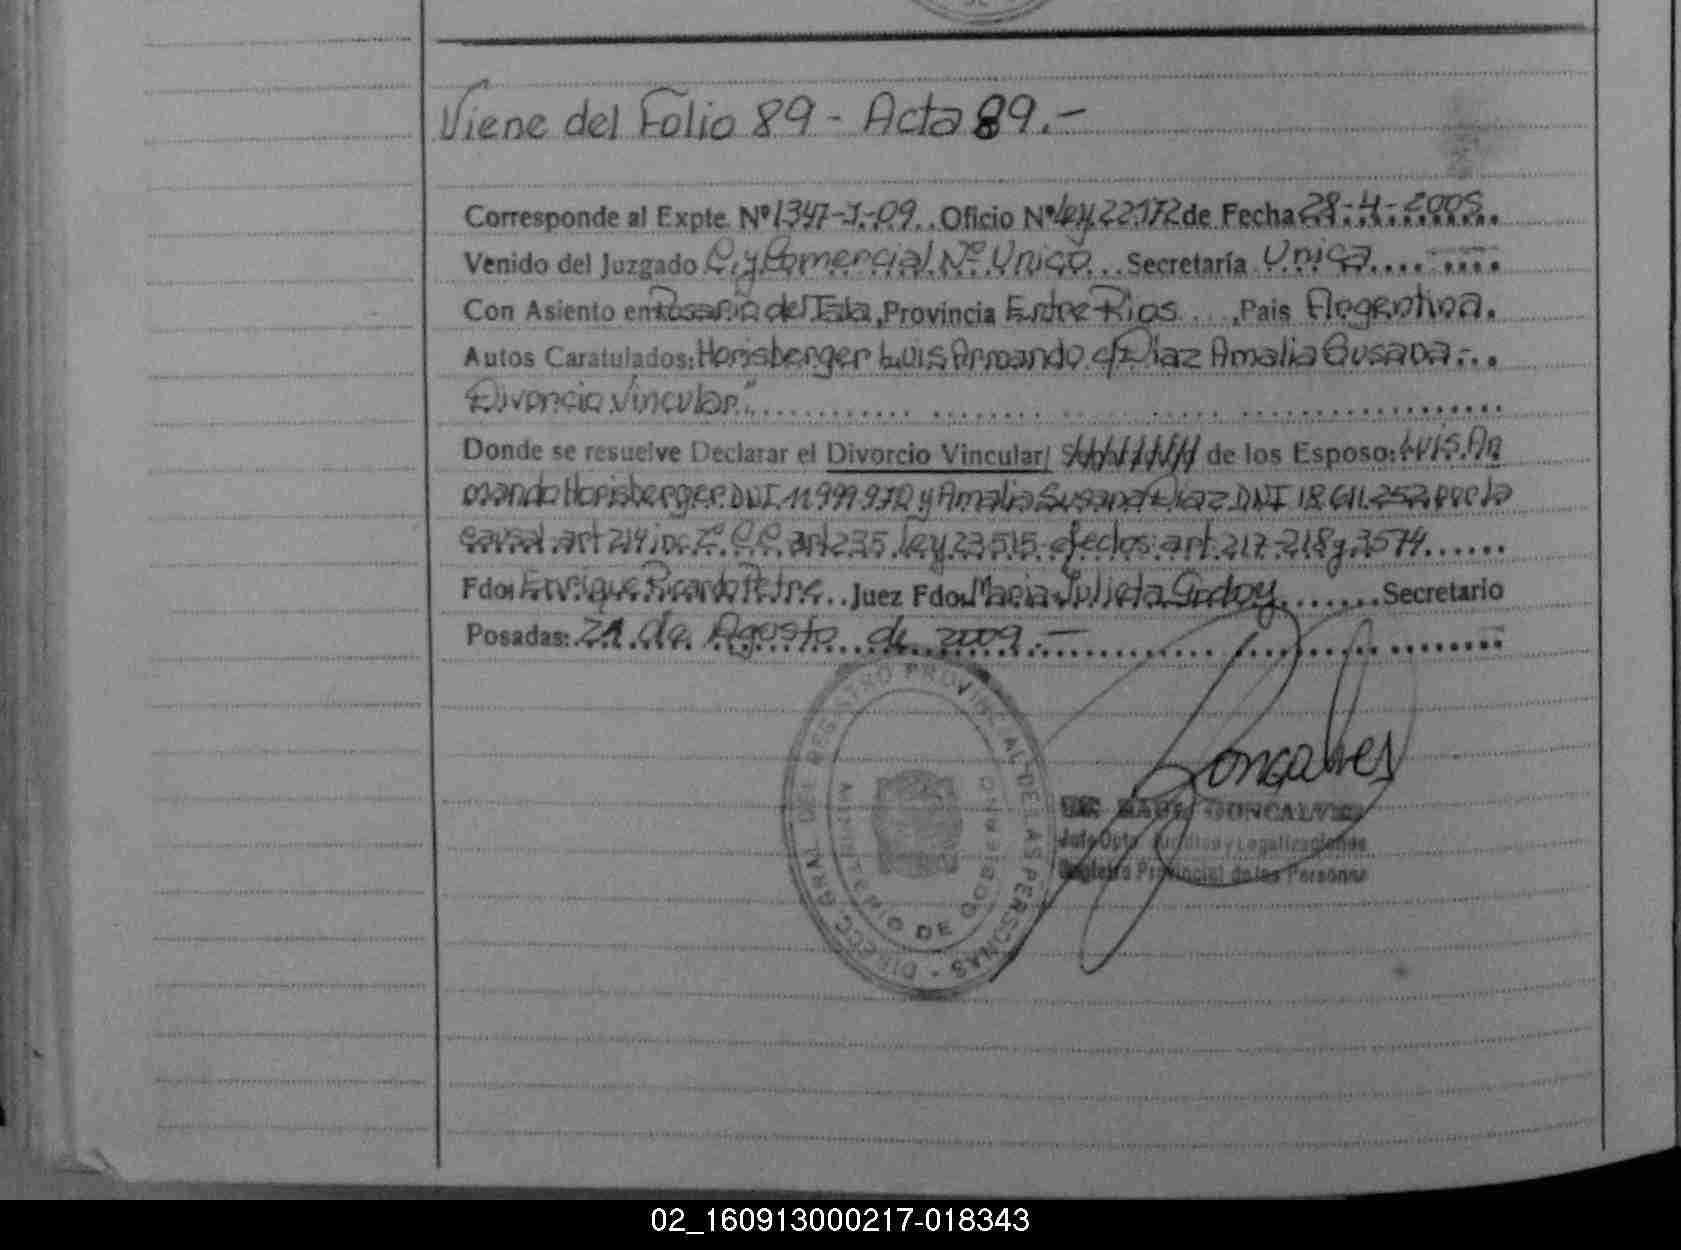 Viene del Folio 89 - Acta 89.-
Corresponde al Expte. Nº 1347-J-09.. Oficio Nº Ley 22172 de Fecha 28-4-2009.
Venido del Juzgado C. y Comercial Nº Unico... Secretaría Unica
Con Asiento en Rosario del Tala, Provincia Entre Rios ...., Pais Argentina.
Autos Caratulados: Horisberger Luis Armando c/ Diaz Amalia Susana -..
Divorcio Vincular"
Donde se resuelve Declarar el Divorcio Vincular/ de los Esposo: Luis Ar
mando Horisberger DNI. 11.999.970 y Amalia Susana Diaz DNI 18.611.252 por la
causal art 214 inc. 2º C.C. art 235 ley 23515- efectos: art. 217-218 y 3574......
Fdo: Enrique Ricardo Petre.. Juez Fdo. Maria Julieta Godoy....... Secretario
Posadas: 21 de Agosto de 2009.-
DIRECC. GRAL. DEL REGISTRO PROVINCIAL DE LAS PERSONAS -
MINISTERIO DE GOBIERNO
Goncalves
GONCALVES
Jefe Dpto. Jurídico y Legalizaciones
Registro Provincial de las Personas
02_160913000217-018343